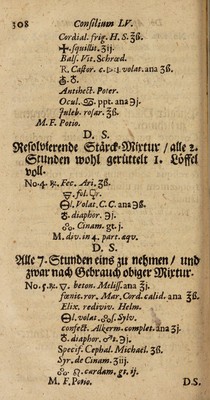 308 Consilium LV.
Cordial. frig. H. S. ℥ß.
🜊. squillit. ʒij.
Bals. Vit. Schrœd.
Castor. c. volat. ana ʒß.
Antihect. Poter.
Ocul. ♋. ppt. ana ℈j.
Juleb. rosar. ℥ß.
M. F. Potio.
D. S.
Resolvierende Stärck-Mixtur / alle 2.
Stunden wohl gerüttelt 1. Löffel
voll.
No. 4. ℞. Fec. Ari. ʒß.
fol.
volat. C. C. ana ℈ß.
diaphor. ℈j.
Cinam. gt. j.
M. div. in 4. part. æqv.
D. S.
Alle 7. Stunden eins zu nehmen / und
zwar nach Gebrauch obiger Mixtur.
No. 5. ℞. beton. Meliss. ana ℥j.
fœnic. ror. Mar. Cord. calid. ana ℥ß.
Elix. rediviv. Helm.
volat. Sylv.
confect. Alkerm. complet. ana ʒj.
diaphor. ℈j.
Specif. Cephal. Michaël. ʒß.
Syr. de Cinam. ℥iij.
cardam. gt. ij.
M. F. Potio. D. S.